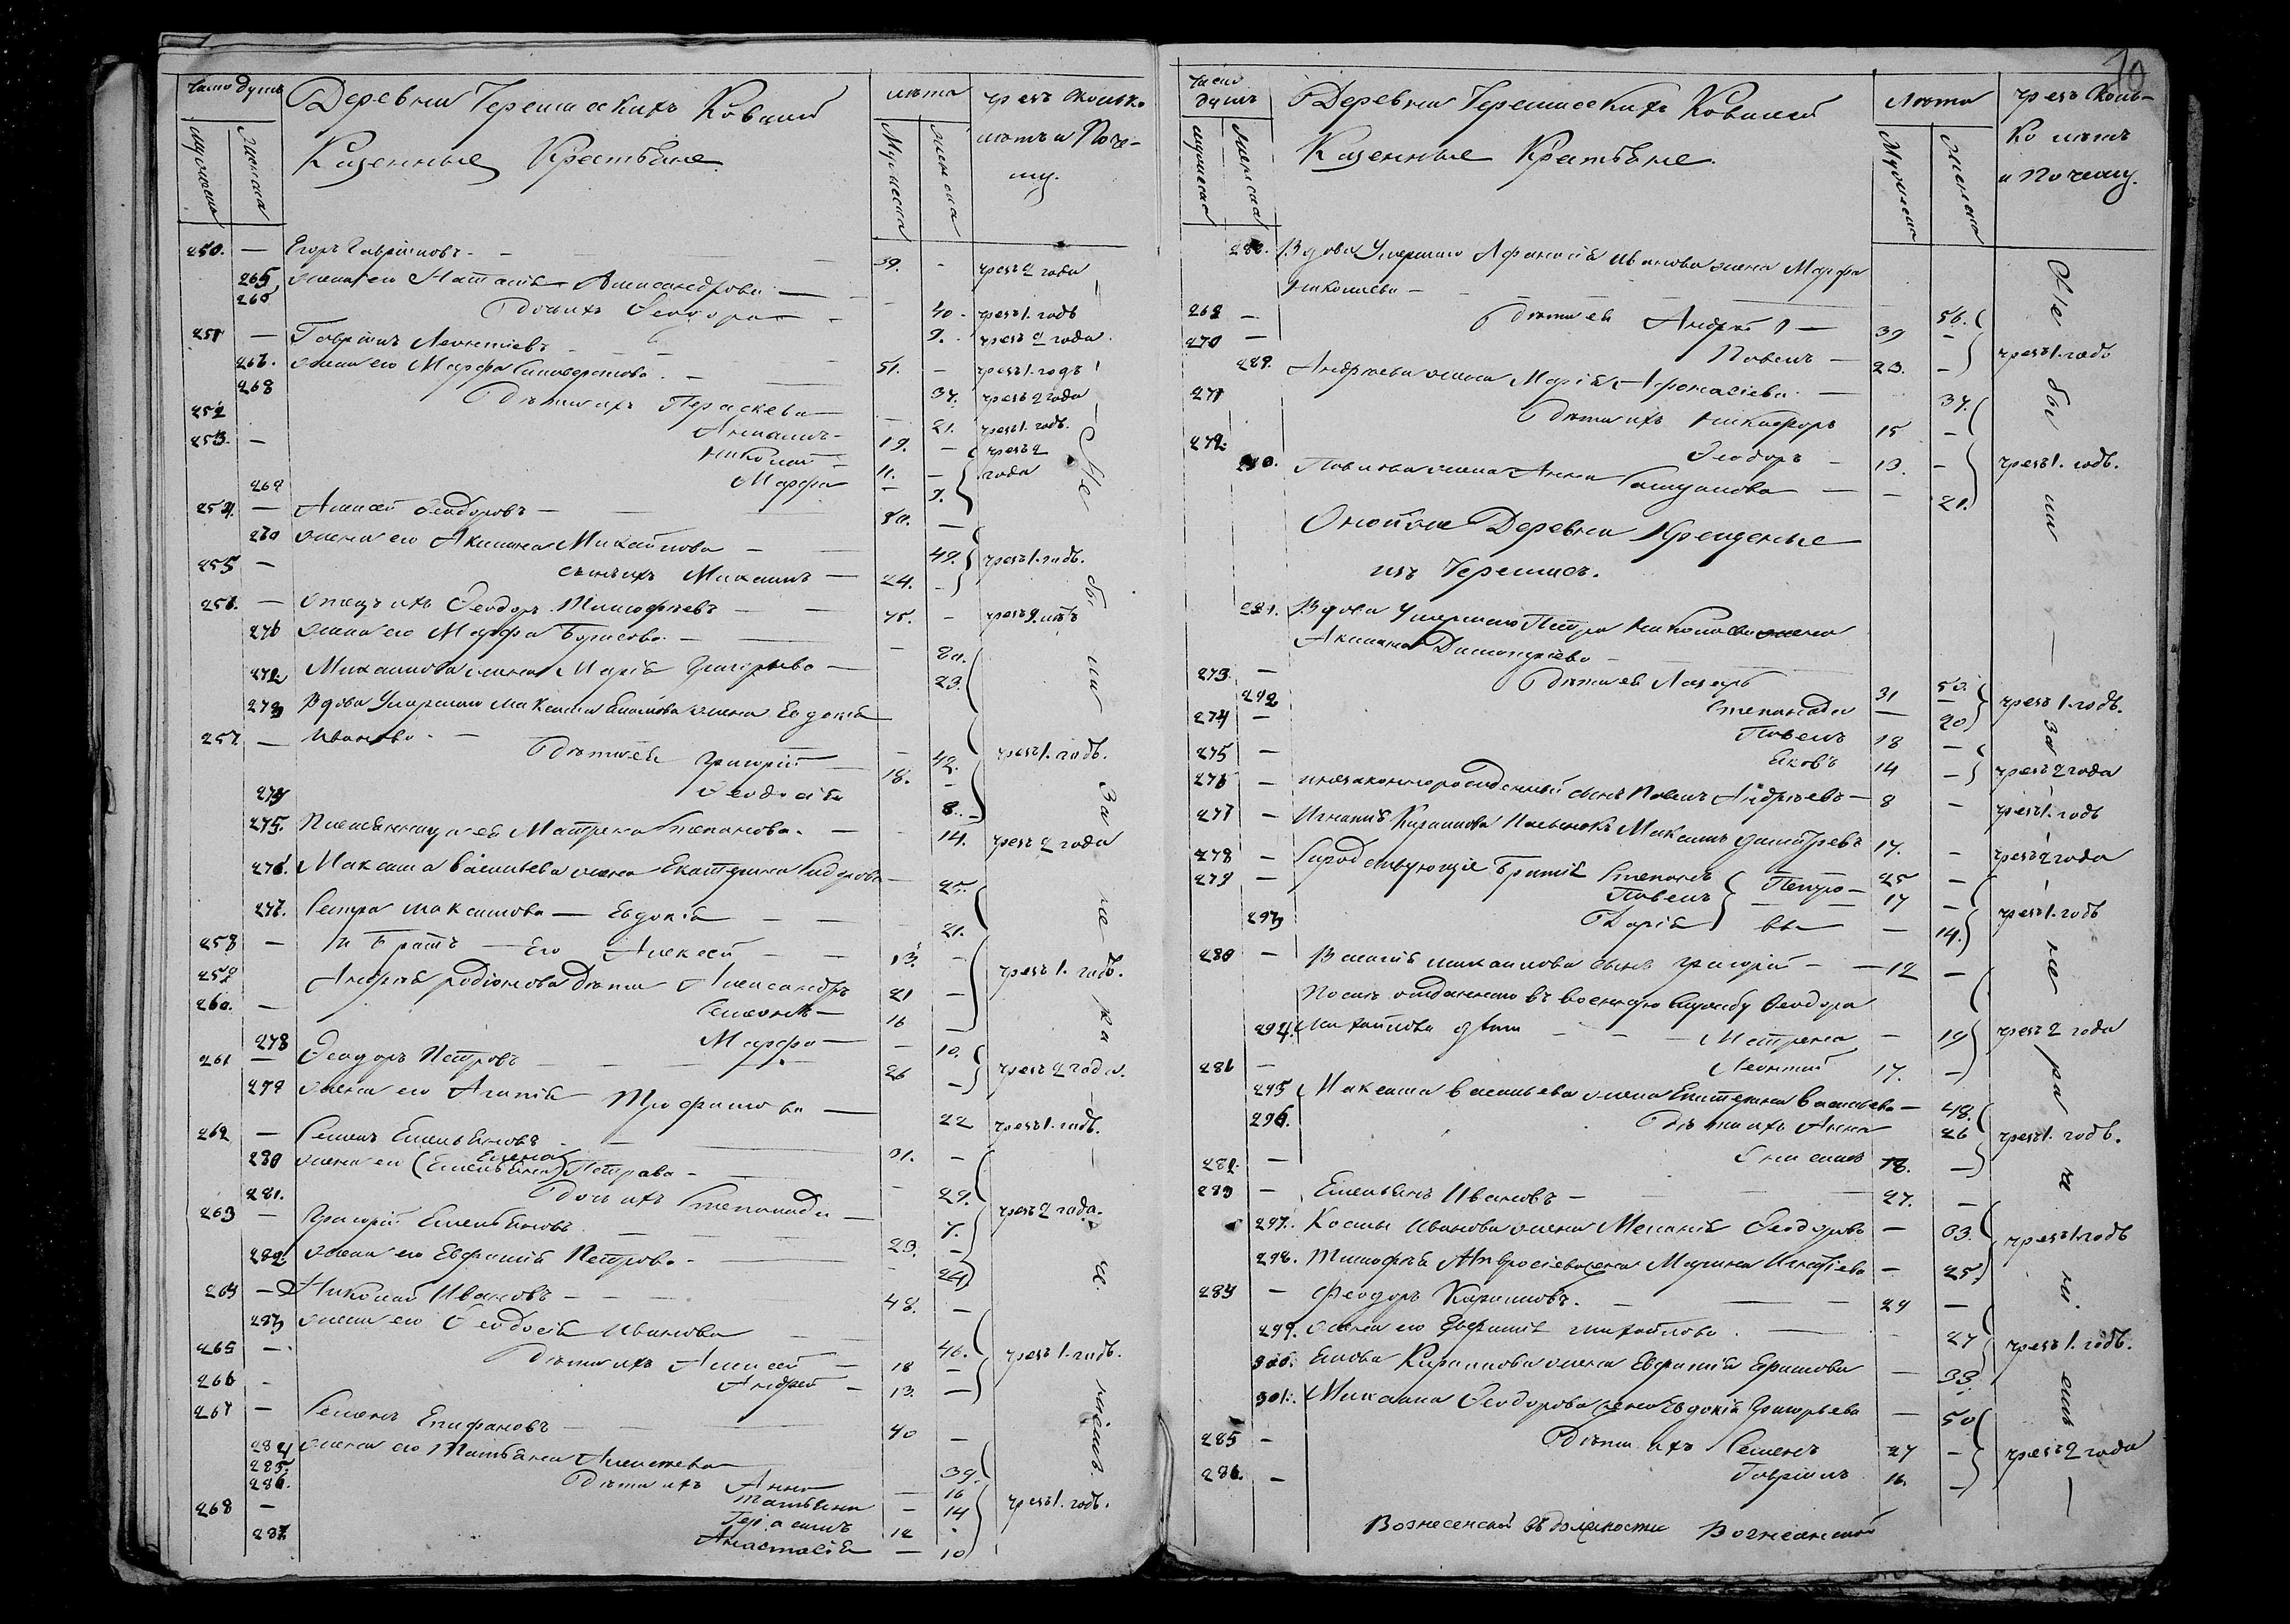 Число душъ
мужеска
женска
Деревни Черемисскихъ Ковалей
Казенные Крестьяне
лѣта
Мужеска
женска
чрезъ сколько
лѣтъ и Поче-
му.
250. — Егоръ Гавриловъ — 39. — чрезъ 2 года
265 жена его Наталья Александрова — 40. чрезъ 1. годъ
266 дочь ихъ Феодора — 9. чрезъ 2 года.
251 — Гавріилъ Леонтіевъ — 51. — чрезъ 1. годъ
267. жена его Марфа — 37. чрезъ 2 года
268 Дѣти ихъ Параскева — 21. чрезъ 1. годъ.
252 — 19. — чрезъ 2
253. — Николай — 11. — года
269 Марфа — 7.
254. — Алексей Феодоровъ — 50. —
270 жена его Акилина Михайлова — 49. чрезъ 1. годъ.
255 — сынъ ихъ Михаилъ — 24. —
256. — Отецъ ихъ Феодоръ Тимофѣевъ — 75. — чрезъ 9. лѣтъ
271 жена его Марфа Борисова — 80.
272. Михаилова жена Марія Григорьева — 23.
273 Вдова Умершаго Максима жена Евдокія
Иванова — 42. чрезъ 1. годъ.
257. — Дѣти ей Григорій — 18. —
274 Феодосія — 8.
275. Племянница ея Матрена Степанова — 14. чрезъ 2 года
276. Максима Васильева жена Екатерина Сидорова — 25.
277. Сестра Максимова — Евдокія — 21.
258 — и Братъ — Его Алексей — 13. —
259 Андрея Родіонова дѣти Александръ 21 — чрезъ 1. годъ.
260. — Семенъ — 16 —
278 Марфа — 10.
261 — Феодоръ Петровъ — 26 — чрезъ 2 года.
279 жена его Агапія Трофимова — 22 чрезъ 1. годъ.
262 — Семенъ Емельяновъ — 31. —
Елена
280 жена его (Емельяна) Петрова — 29.
281. Дочь ихъ Степанида — 7. чрезъ 2 года.
263 — Григорій Емельяновъ — 23. —
282. жена его Евфимія Петрова — 24
264 — Николай Ивановъ — 48. —
283 жена его Феодосія Иванова — 46. чрезъ 1. годъ.
265 — Дѣти ихъ Алексей — 18 —
266 — Андрей — 13. —
267 — Семенъ Епифановъ — 40 —
284 жена его Татьяна Алексеева — 39.
285. Дѣти ихъ Анна — 16
286. Татьяна — 14 чрезъ 1. годъ.
268 — Герасимъ 12
287. Анастасія — 10
Не бы ли За не ка че ніемъ.
10
Число
душъ
мужеска
женска
Деревни Черемисскихъ Ковалей
Казенные Крестьяне.
Лѣта
Мужеска
женска
чрезъ Сколь-
ко лѣтъ
и Почему.
288. Вдова Умершаго Афанасія Иванова жена Марфа
Николаева — 56.
269 — Дѣти ея Андрей — 39 —
270 — Павелъ — 23. — чрезъ 1. годъ
289. Андреева жена Марія Афанасіева — 37.
271 Дѣти ихъ Никифоръ 15 —
272. Феодоръ — 13. — чрезъ 1. годъ.
290. Павлова жена Анна — 21.
Оной же Деревни Крещеные
изъ Черемисъ.
291. Вдова Умершаго Петра Николаева жена
Акилина Димитріева — 53.
273 — Дѣти ея Лазарь 31 — чрезъ 1. годъ.
292 Степанида — 20
274 — Павелъ 18 —
275 — Яковъ 14 — чрезъ 2 года
276 — незаконнорожденный сынъ Павелъ Андрѣевъ — 8 — чрезъ 1. годъ
277 — Игнатія Кирилова Племянникъ Максимъ Димитріевъ 17. — чрезъ 2 года
278 — Сиродствующіе Братья Степанъ Петро- 25 —
279 — Павелъ 17 — чрезъ 1. годъ
293 Дарія вы — 14.
280 — Василія Михайлова сынъ Григорій — 12 —
Послѣ отданнаго въ военную службу Феодора
294. Михайлова дѣти — Матрена — 19 чрезъ 2 года
281 — Леонтій 17. —
295 Максима Васильева жена Екатерина Васильева — 48.
296. Дѣти ихъ Анна 26 чрезъ 1. годъ.
282. — 18. —
283 — Емельянъ Ивановъ — 27. —
297. Космы Иванова жена Меланія Феодорова — 33. чрезъ 1. годъ
298. Тимофѣя Амвросіева жена Марина Игнатіева — 25.
284 — Феодоръ Кириловъ. — 29 —
299. жена его Евфимія Михайлова — 27 чрезъ 1. годъ.
300. Якова Кирилова жена Евфимія Ефимова — 33.
301. Михаила Феодорова жена Евдокія Григорьева — 50
285 — Дѣти ихъ Семенъ 27 — чрезъ 2 года
286. — Гавріилъ 16. —
Не бы ли — За не ра че ні емъ —